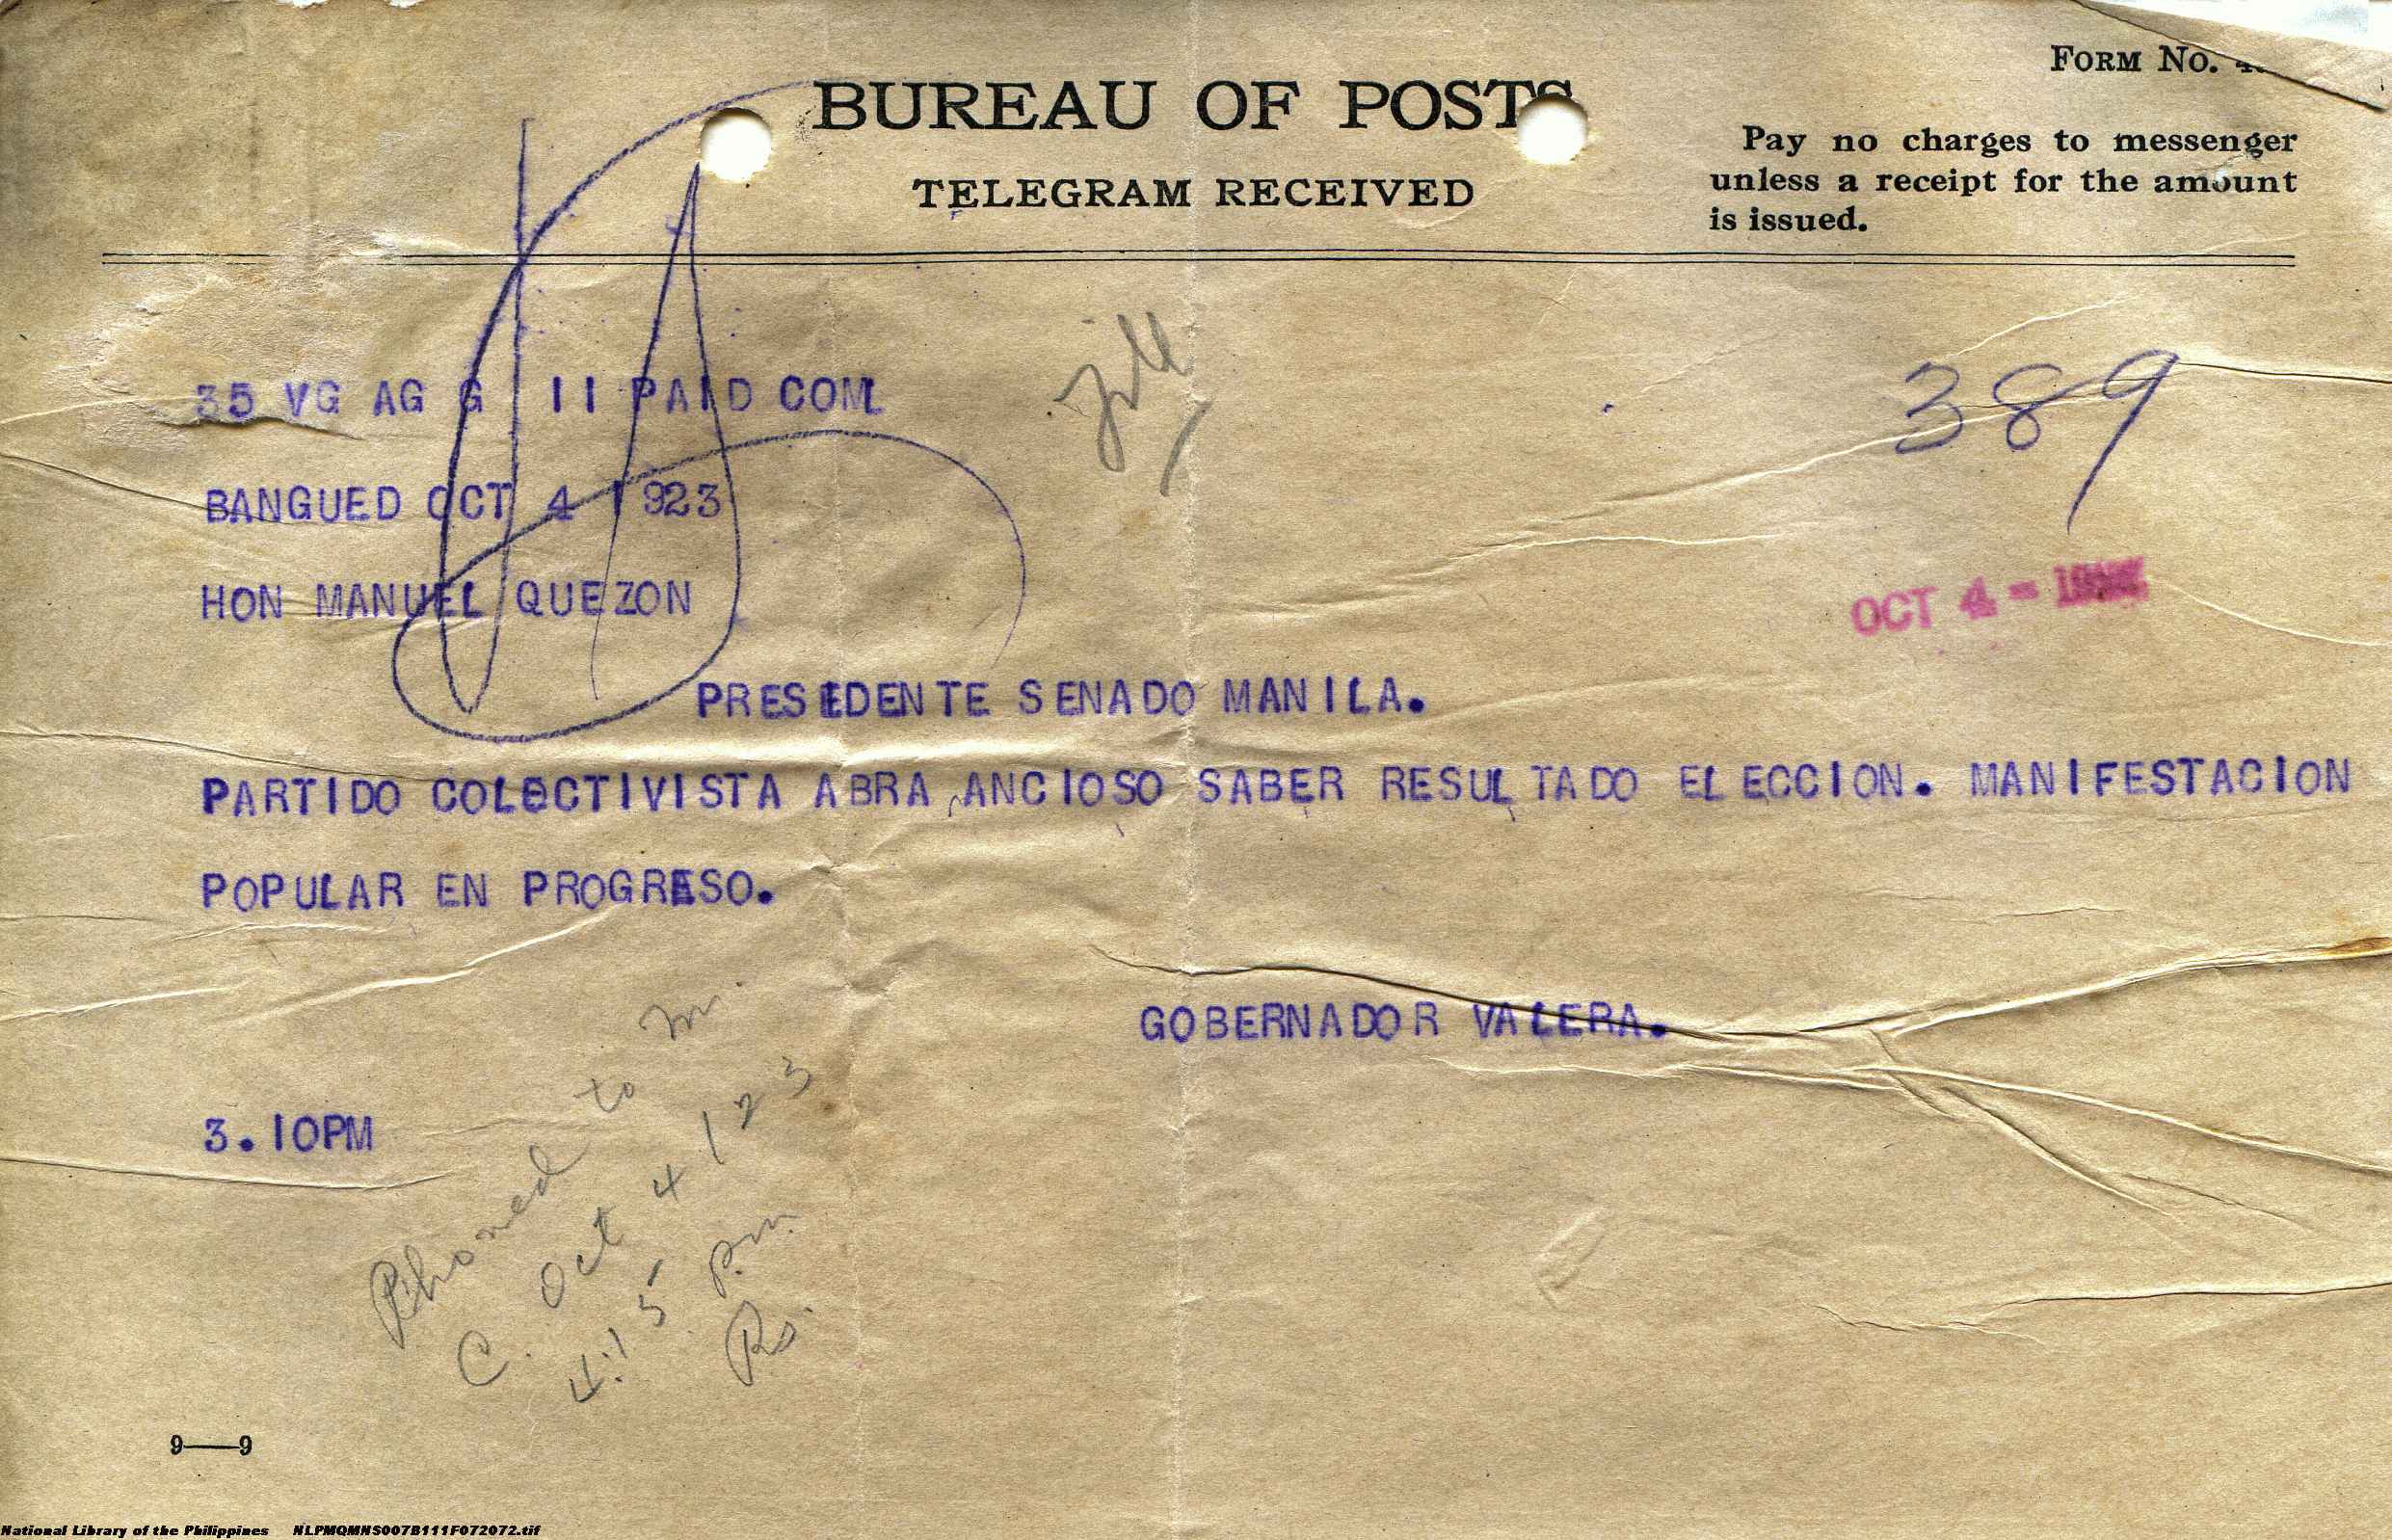 FORM NO.
BUREAU OF POSTS
TELEGRAM RECEIVED
Pay no charges to messenger
unless a receipt for the amount
is issued.
35 VG AG G 11 PAID COM.
389
BANGUED OCT 4 1923
HON MANUEL QUEZON
OCT 4 -
PRESEDENTE SENADO MANILA.
PARTIDO COLECTIVISTA ABRA ANCIOSO SABER RESULTADO ELECCION. MANIFESTACION
POPULAR EN PROGRESO.
GOBERNADOR VALERA.
3.10PM
Phoned to Mr.
C. Oct 4 / 23
4:15 P.m.
Rs.
9——9
National Library of the Philippines NLPMQMNS007B111F072072.tif